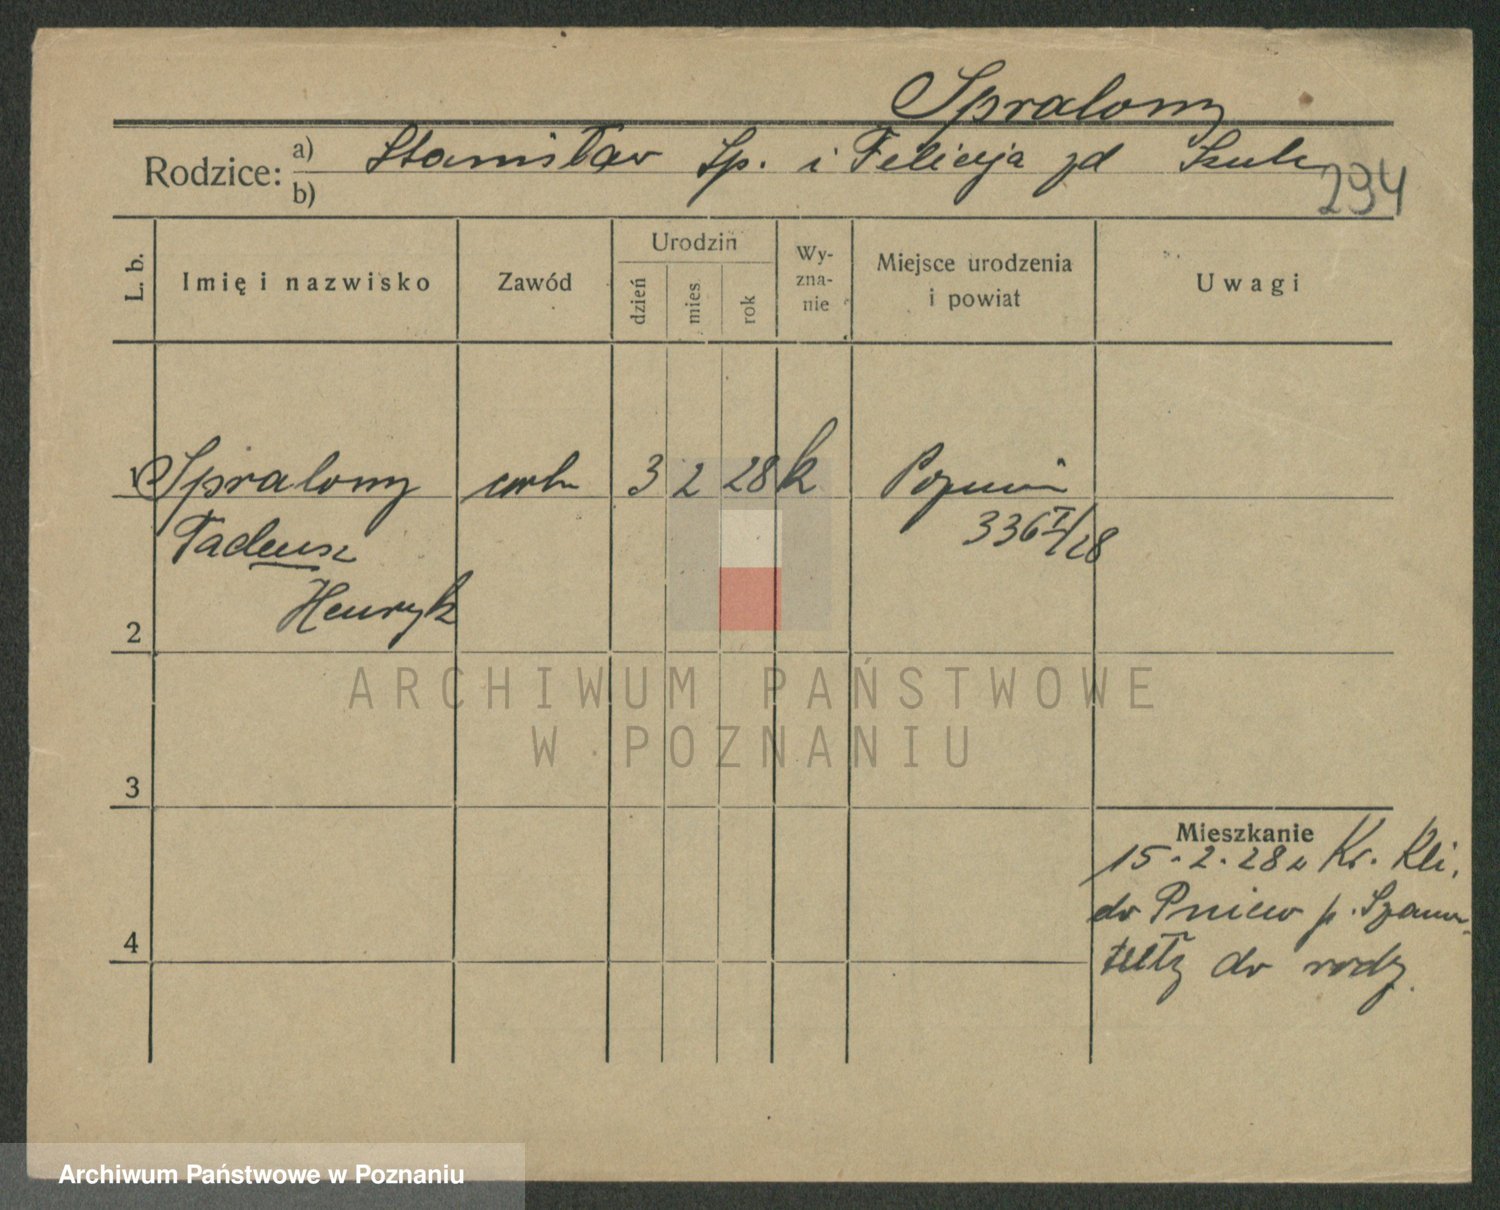 Spralony
Rodzice: a) Stanisław Sp. i Felicja zd Szulc
b)
294
L. b.
Imię i nazwisko
Zawód
Urodzin
dzień
mies.
rok
Wy-
zna-
nie
Miejsce urodzenia
i powiat
Uwagi
1 Spralony 3 2 28 k Poznań
Tadeusz
336 I/28
Henryk
2
3
4
Mieszkanie
15-2-28 Kr. Kli.
do Pniew p. Szamo-
tuły do rodz.
ARCHIWUM PAŃSTWOWE
W POZNANIU
Archiwum Państwowe w Poznaniu